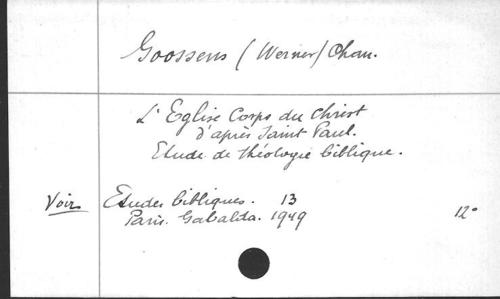 Goossens (Werner) Chan.
L'Eglise Corps du Christ
d'après Saint Paul.
Etude de théologie biblique.
Voir Etudes bibliques. 13
Paris. Gabalda. 1949 12°